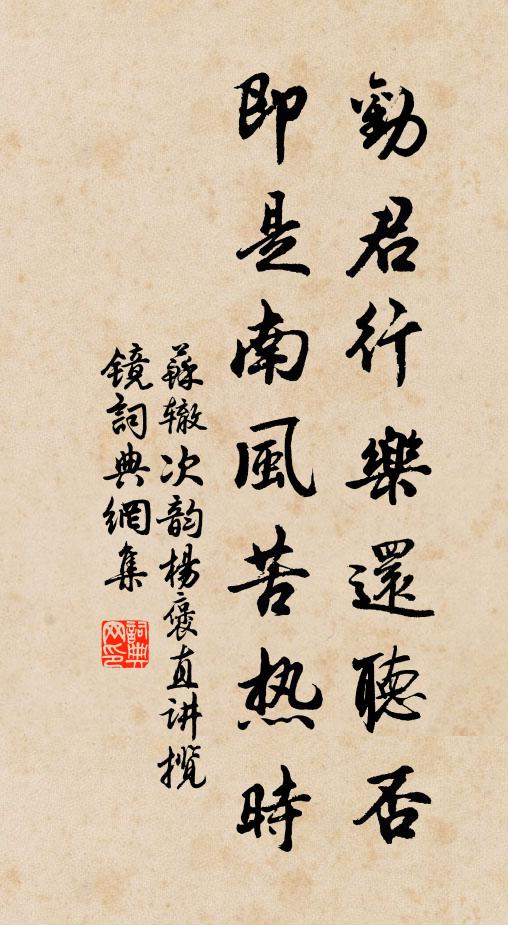 勸君行樂還聽否
即是南風苦热時
蘇辙次韵楊褒直讲揽
鏡詞典網集
詞典
网印